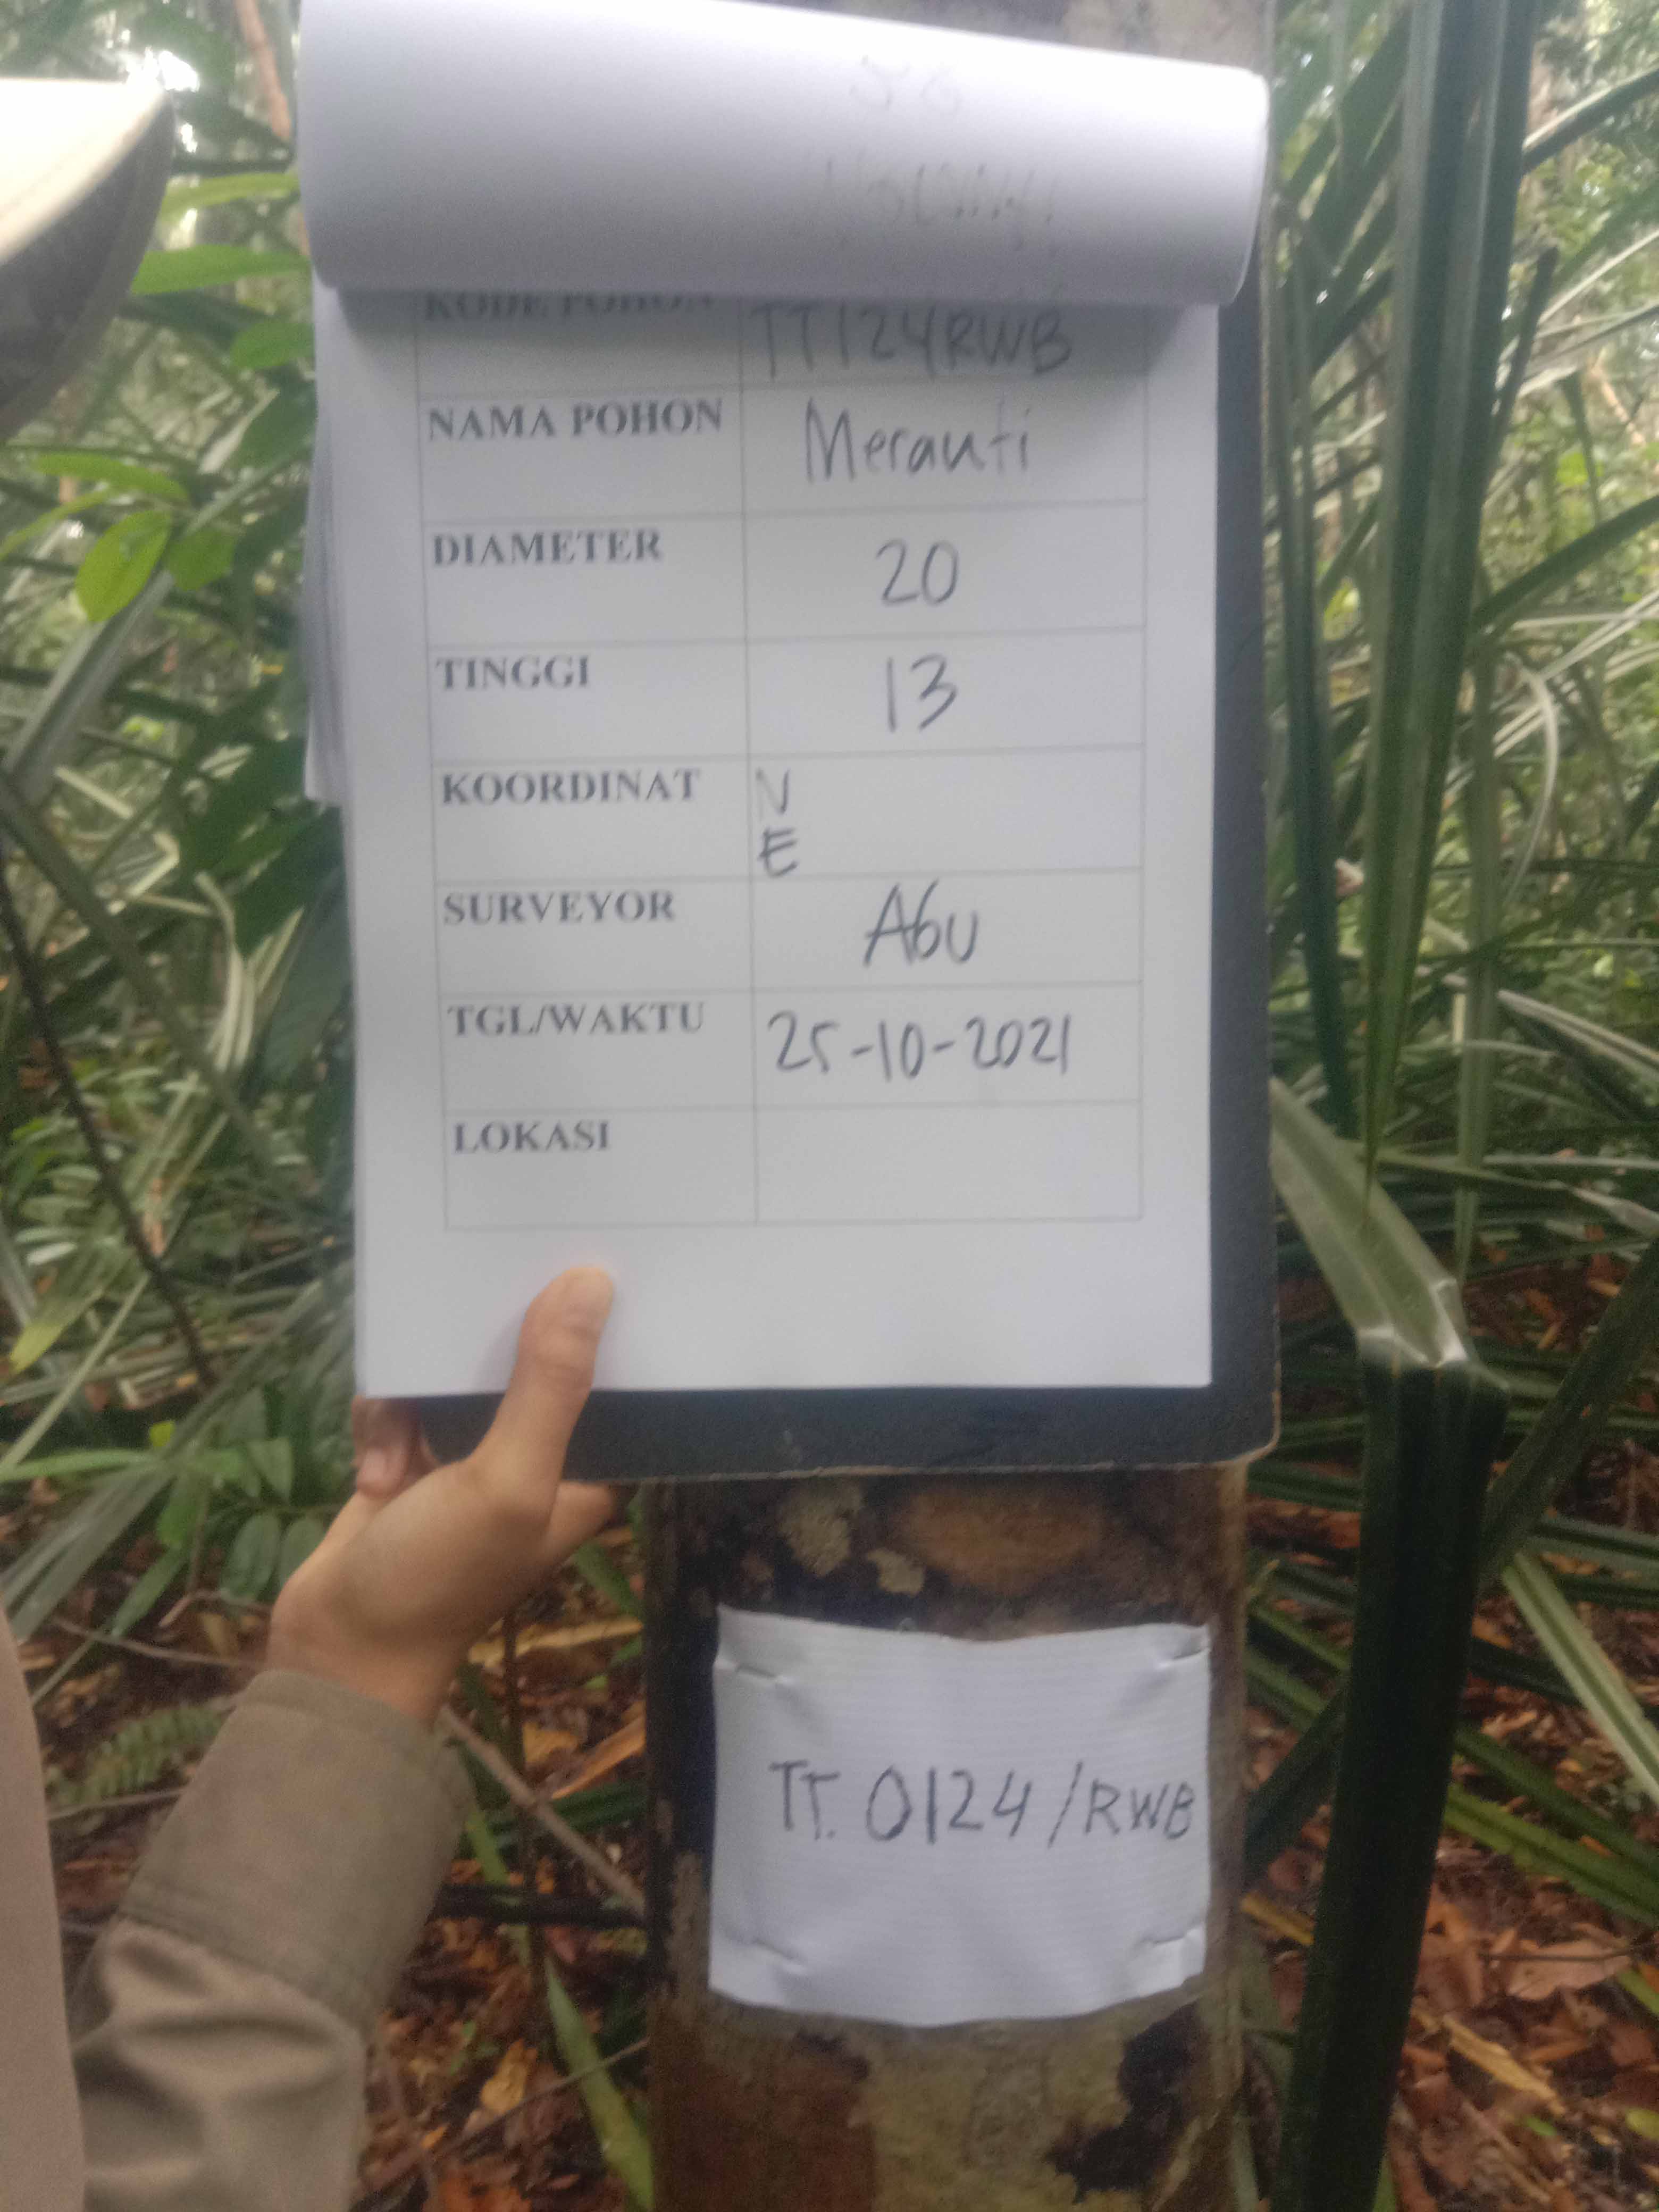 KODE POHON TT124RWB
NAMA POHON Merauti
DIAMETER 20
TINGGI 13
KOORDINAT N
E
SURVEYOR Abu
TGL/WAKTU 25-10-2021
LOKASI
TT. 0124/RWB